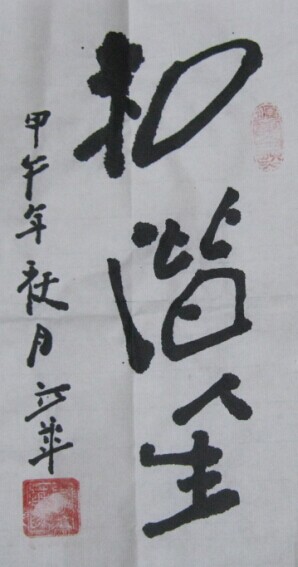 和谐人生
甲午年秋月